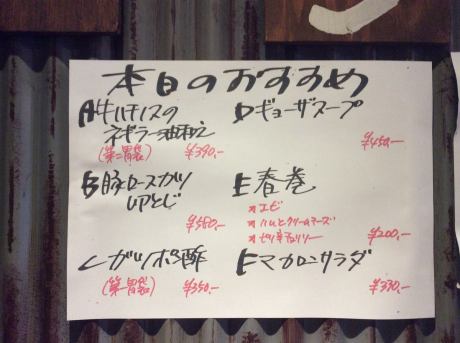 本日のおすすめ
A牛ハチノスの
ネギラー油和え
(第二胃袋) ¥390,-
B豚ロースカツ
卵とじ
¥580,-
Cガツポン酢
(第一胃袋) ¥350,-
Dギョーザスープ
¥450,-
E春巻
*エビ
*ハムとクリームチーズ
¥200,-
Fマカロニサラダ
¥330,-